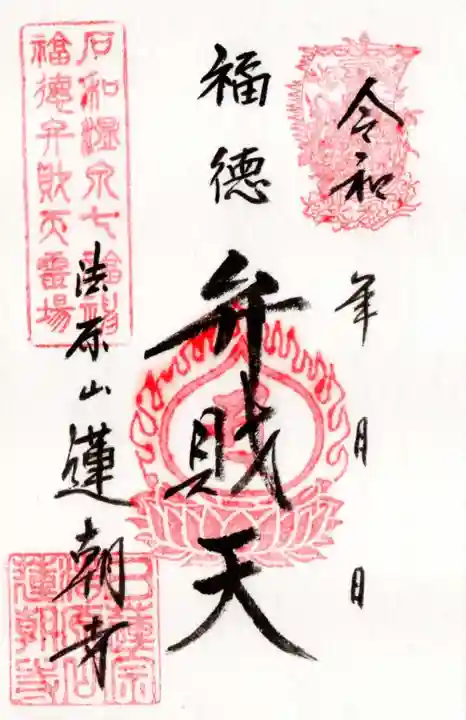 令和
年 月 日
福徳
弁財天
石和温泉七福神
福徳弁財天霊場
法原山蓮朝寺
日蓮宗
蓮朝寺